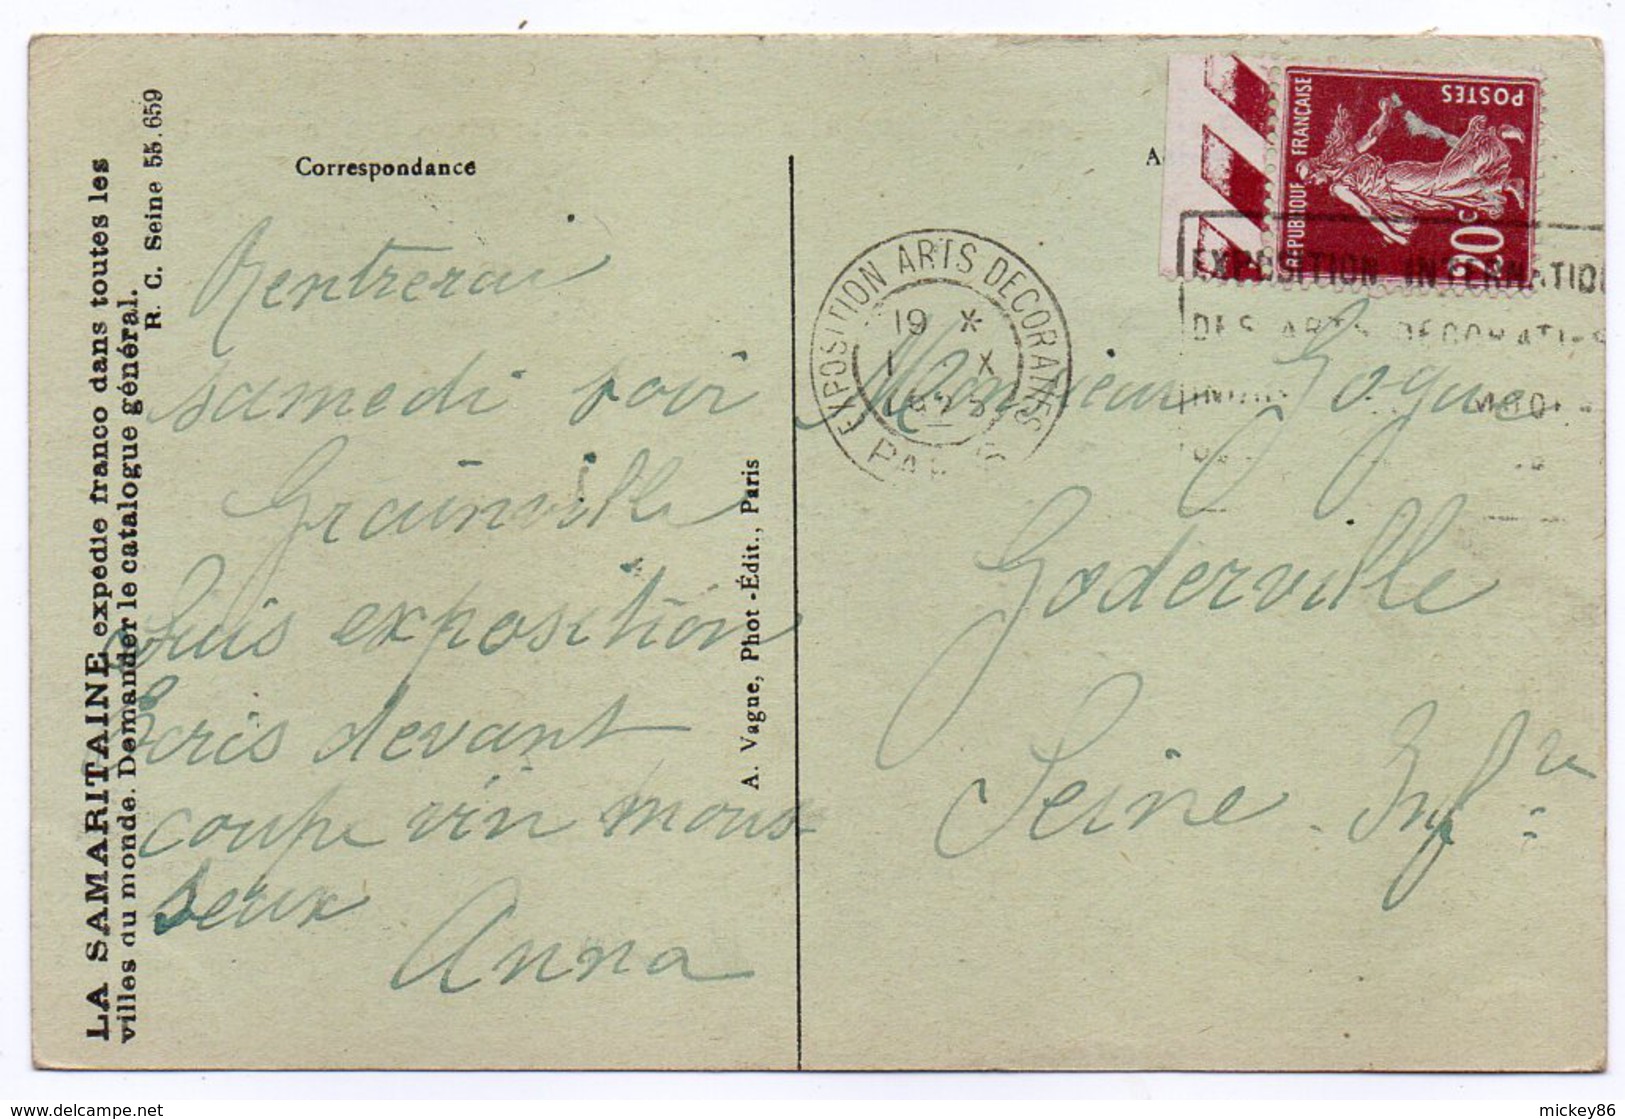 LA SAMARITAINE expédie franco dans toutes les
villes du monde. Demander le catalogue général.
R. C. Seine 55.659
Correspondance
Rentrerai
samedi soir
Grainville
Suis exposition
Ecris devant
coupe vin mous
seux
Anna
A. Vague, Phot-Édit., Paris
A
POSTES
REPUBLIQUE FRANÇAISE
20c
EXPOSITION ARTS DECORATIFS
19 X
1 X
1925
PARIS
EXPOSITION INTERNATION
DES ARTS DECORATIFS
Monsieur Gogue
Goderville
Seine Infre
delcampe.net
mickey86